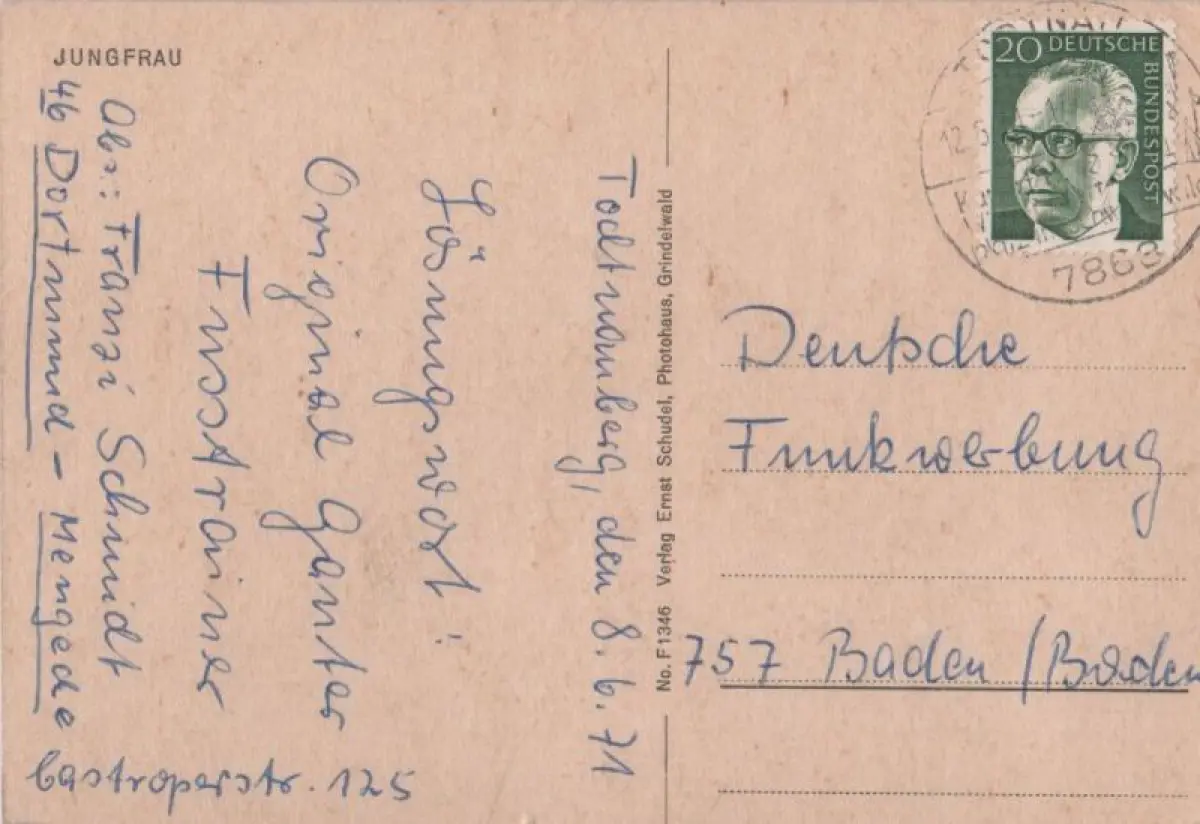 JUNGFRAU
Todtnauberg, den 8. 6. 71
Lösungswort:
Original Ganter
Fusstrainer
Abs: Franzi Schmidt
46 Dortmund - Mengede
Castroperstr. 125
No. F1346 Verlag Ernst Schudel, Photohaus, Grindelwald
20 DEUTSCHE
BUNDESPOST
12.6.
7868
Deutsche
Funkwerbung
757 Baden / Baden